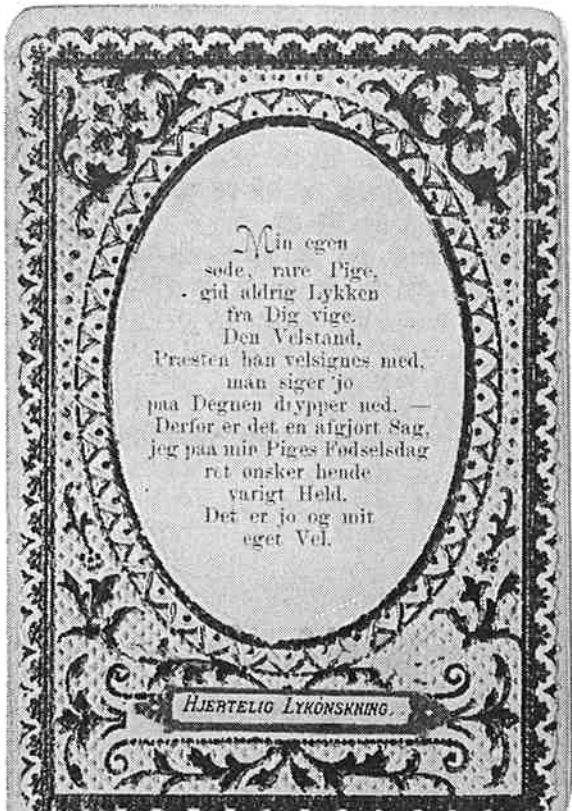 Min egen
søde, rare Pige,
gid aldrig Lykken
fra Dig vige.
Den Velstand,
Præsten han velsignes med,
man siger jo
paa Degnen drypper ned. —
Derfor er det en afgjort Sag,
jeg paa min Piges Fødselsdag
ret ønsker hende
varigt Held.
Det er jo og mit
eget Vel.
HJERTELIG LYKØNSKNING.